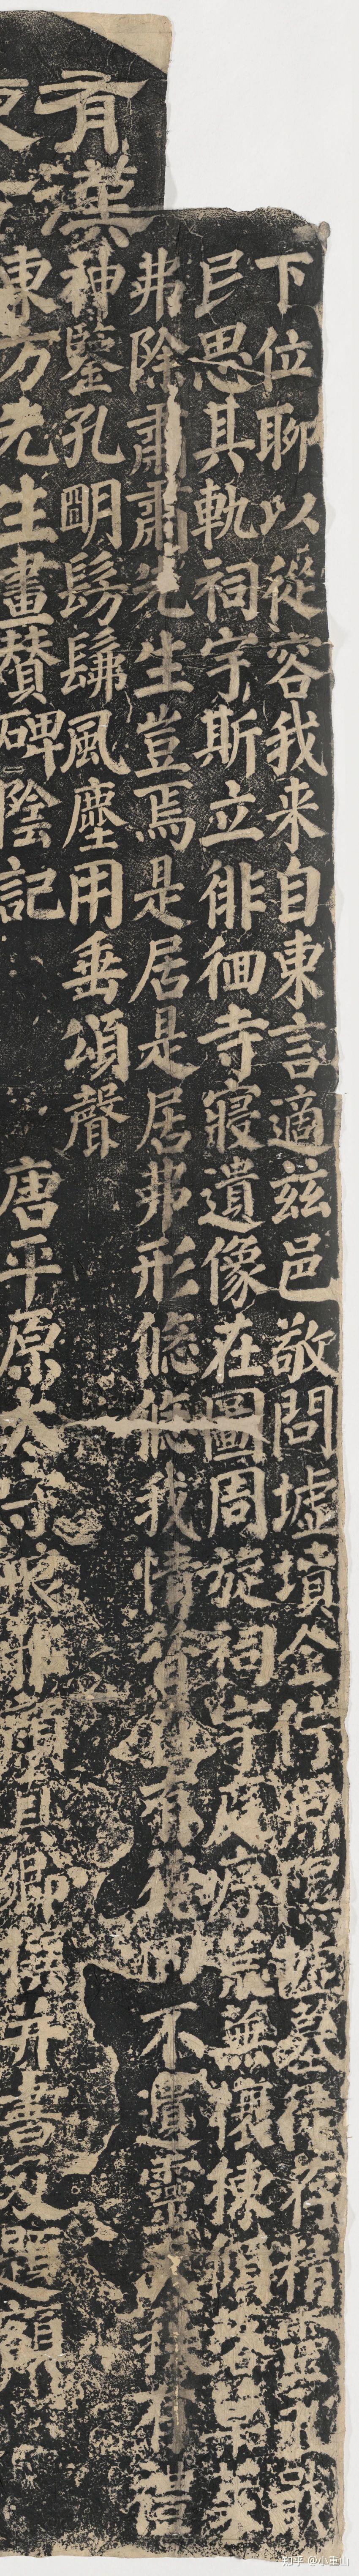 有漢
下位聊以從容我来自東言適茲邑敬問墟墳企佇原隰墟墓徒存精靈永戢
民思其軌祠宇斯立徘徊寺寢遺像在圖周旋祠宇庭序荒蕪榱棟傾落草萊
弗除肅肅先生豈焉是居是居弗形悠悠我情昔在有德罔不遺靈天秩有禮
神鑒孔明髣髴風塵用垂頌聲
東方先生畫贊碑陰記 唐平原太守琅邪顏真卿撰并書及題額
知乎 @小重山